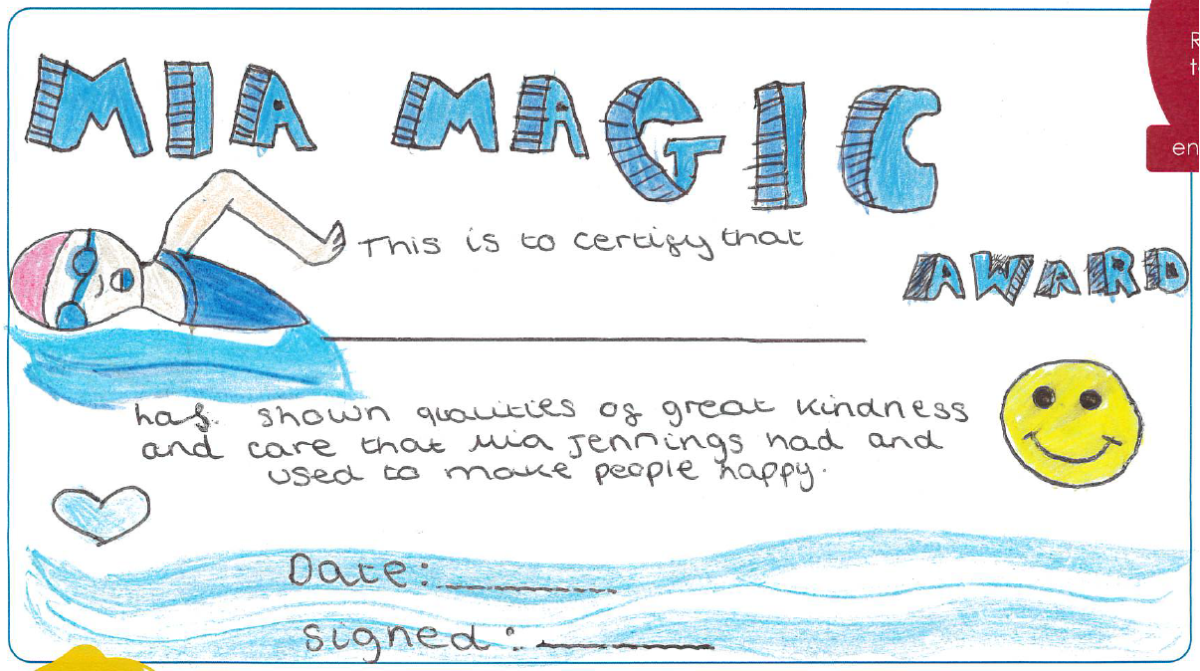 MIA MAGIC
This is to certify that
AWARD
has shown qualities of great kindness
and care that Mia Jennings had and
used to make people happy.
Date:
signed: